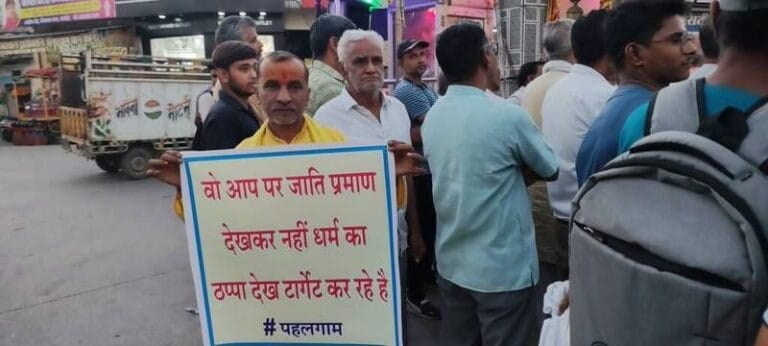 वो आप पर जाति प्रमाण
देखकर नहीं धर्म का
ठप्पा देख टार्गेट कर रहे है
#पहलगाम